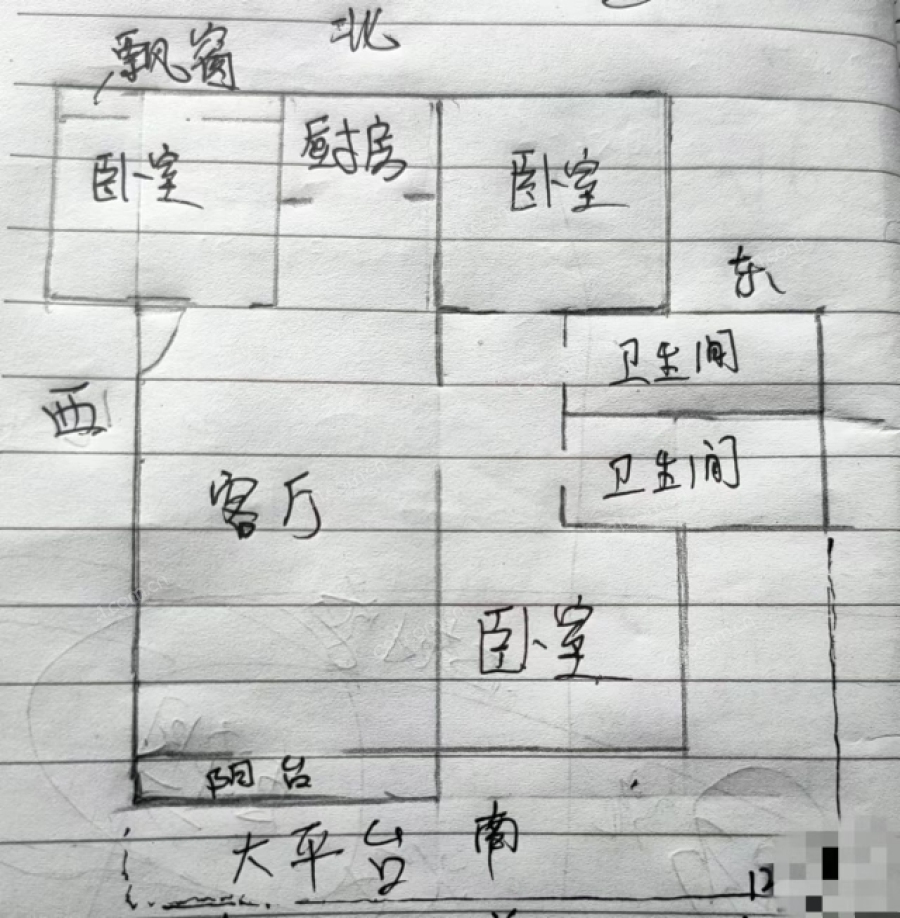 北
飘窗
厨房
卧室
卧室
东
卫生间
西
卫生间
客厅
卧室
阳台
大平台
南